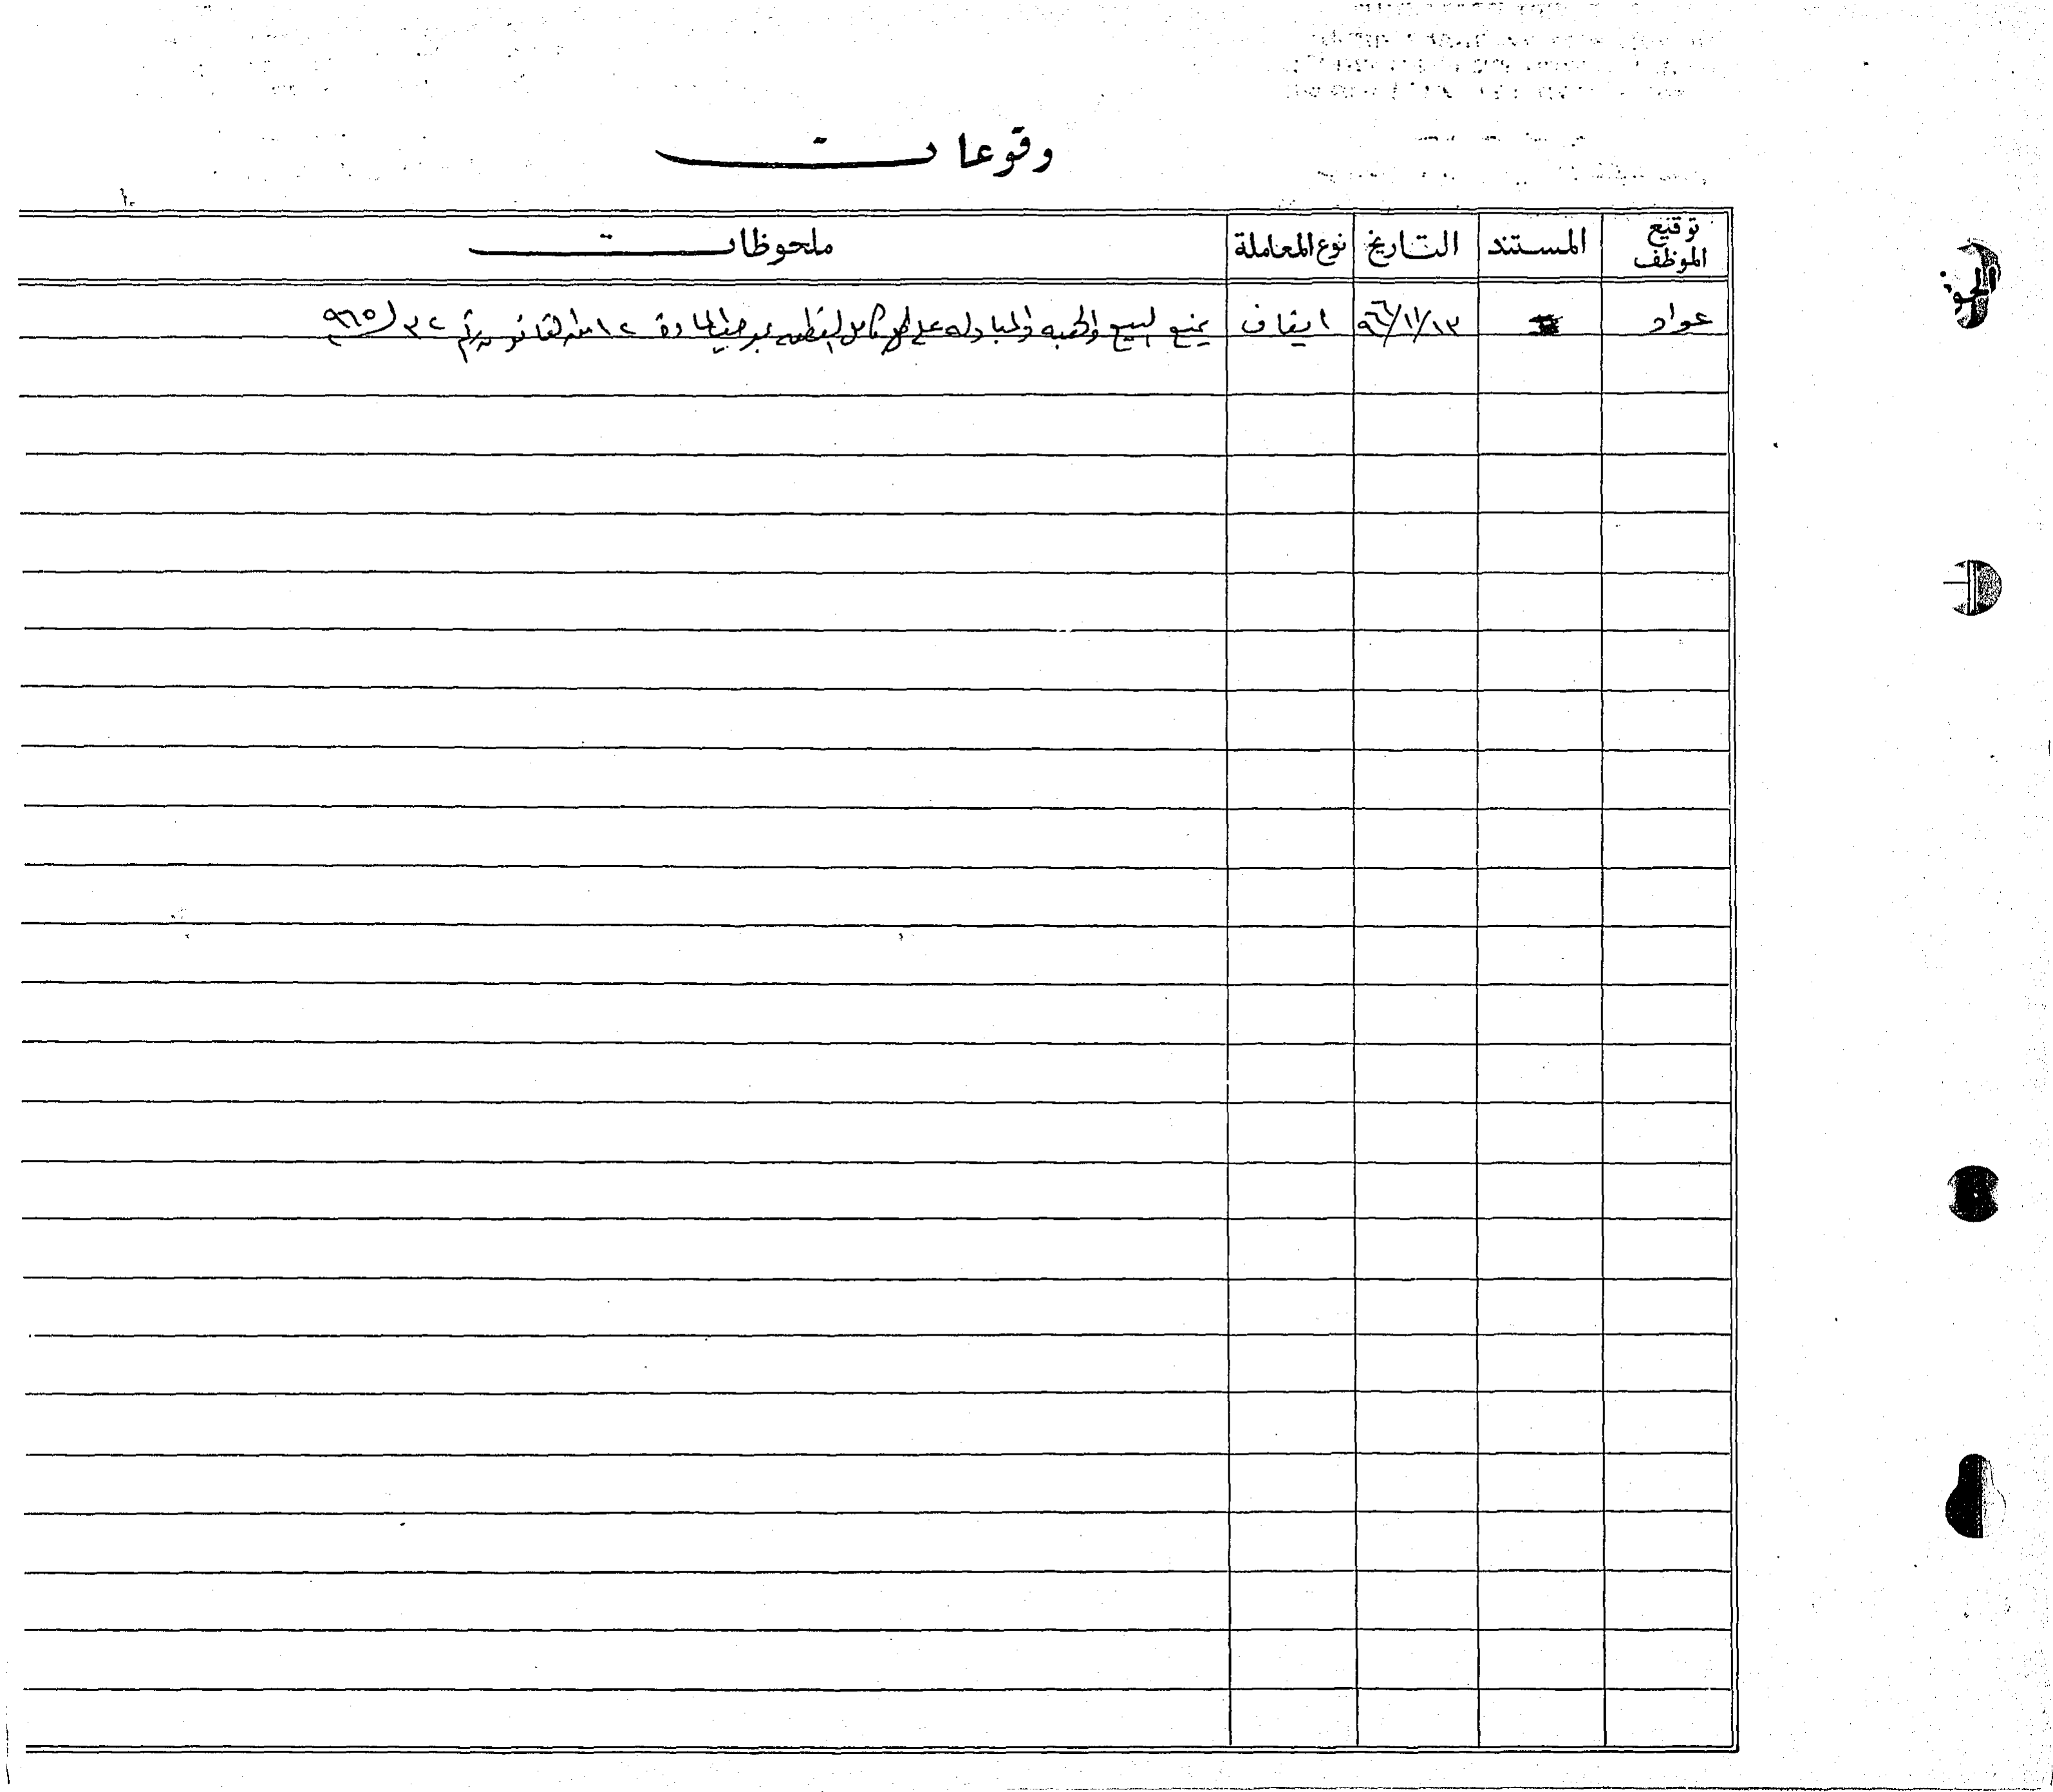 وقوعات
توقيع الموظف | المستند | التاريخ | نوع المعاملة | ملحوظات
عواد | ٩٦/١١/١٣ | ايقاف | يمنع البيع والهبه والمبادله على كامل القطعه بموجب المادة ١٢ من القانون رقم ٣٢/٩٦٥